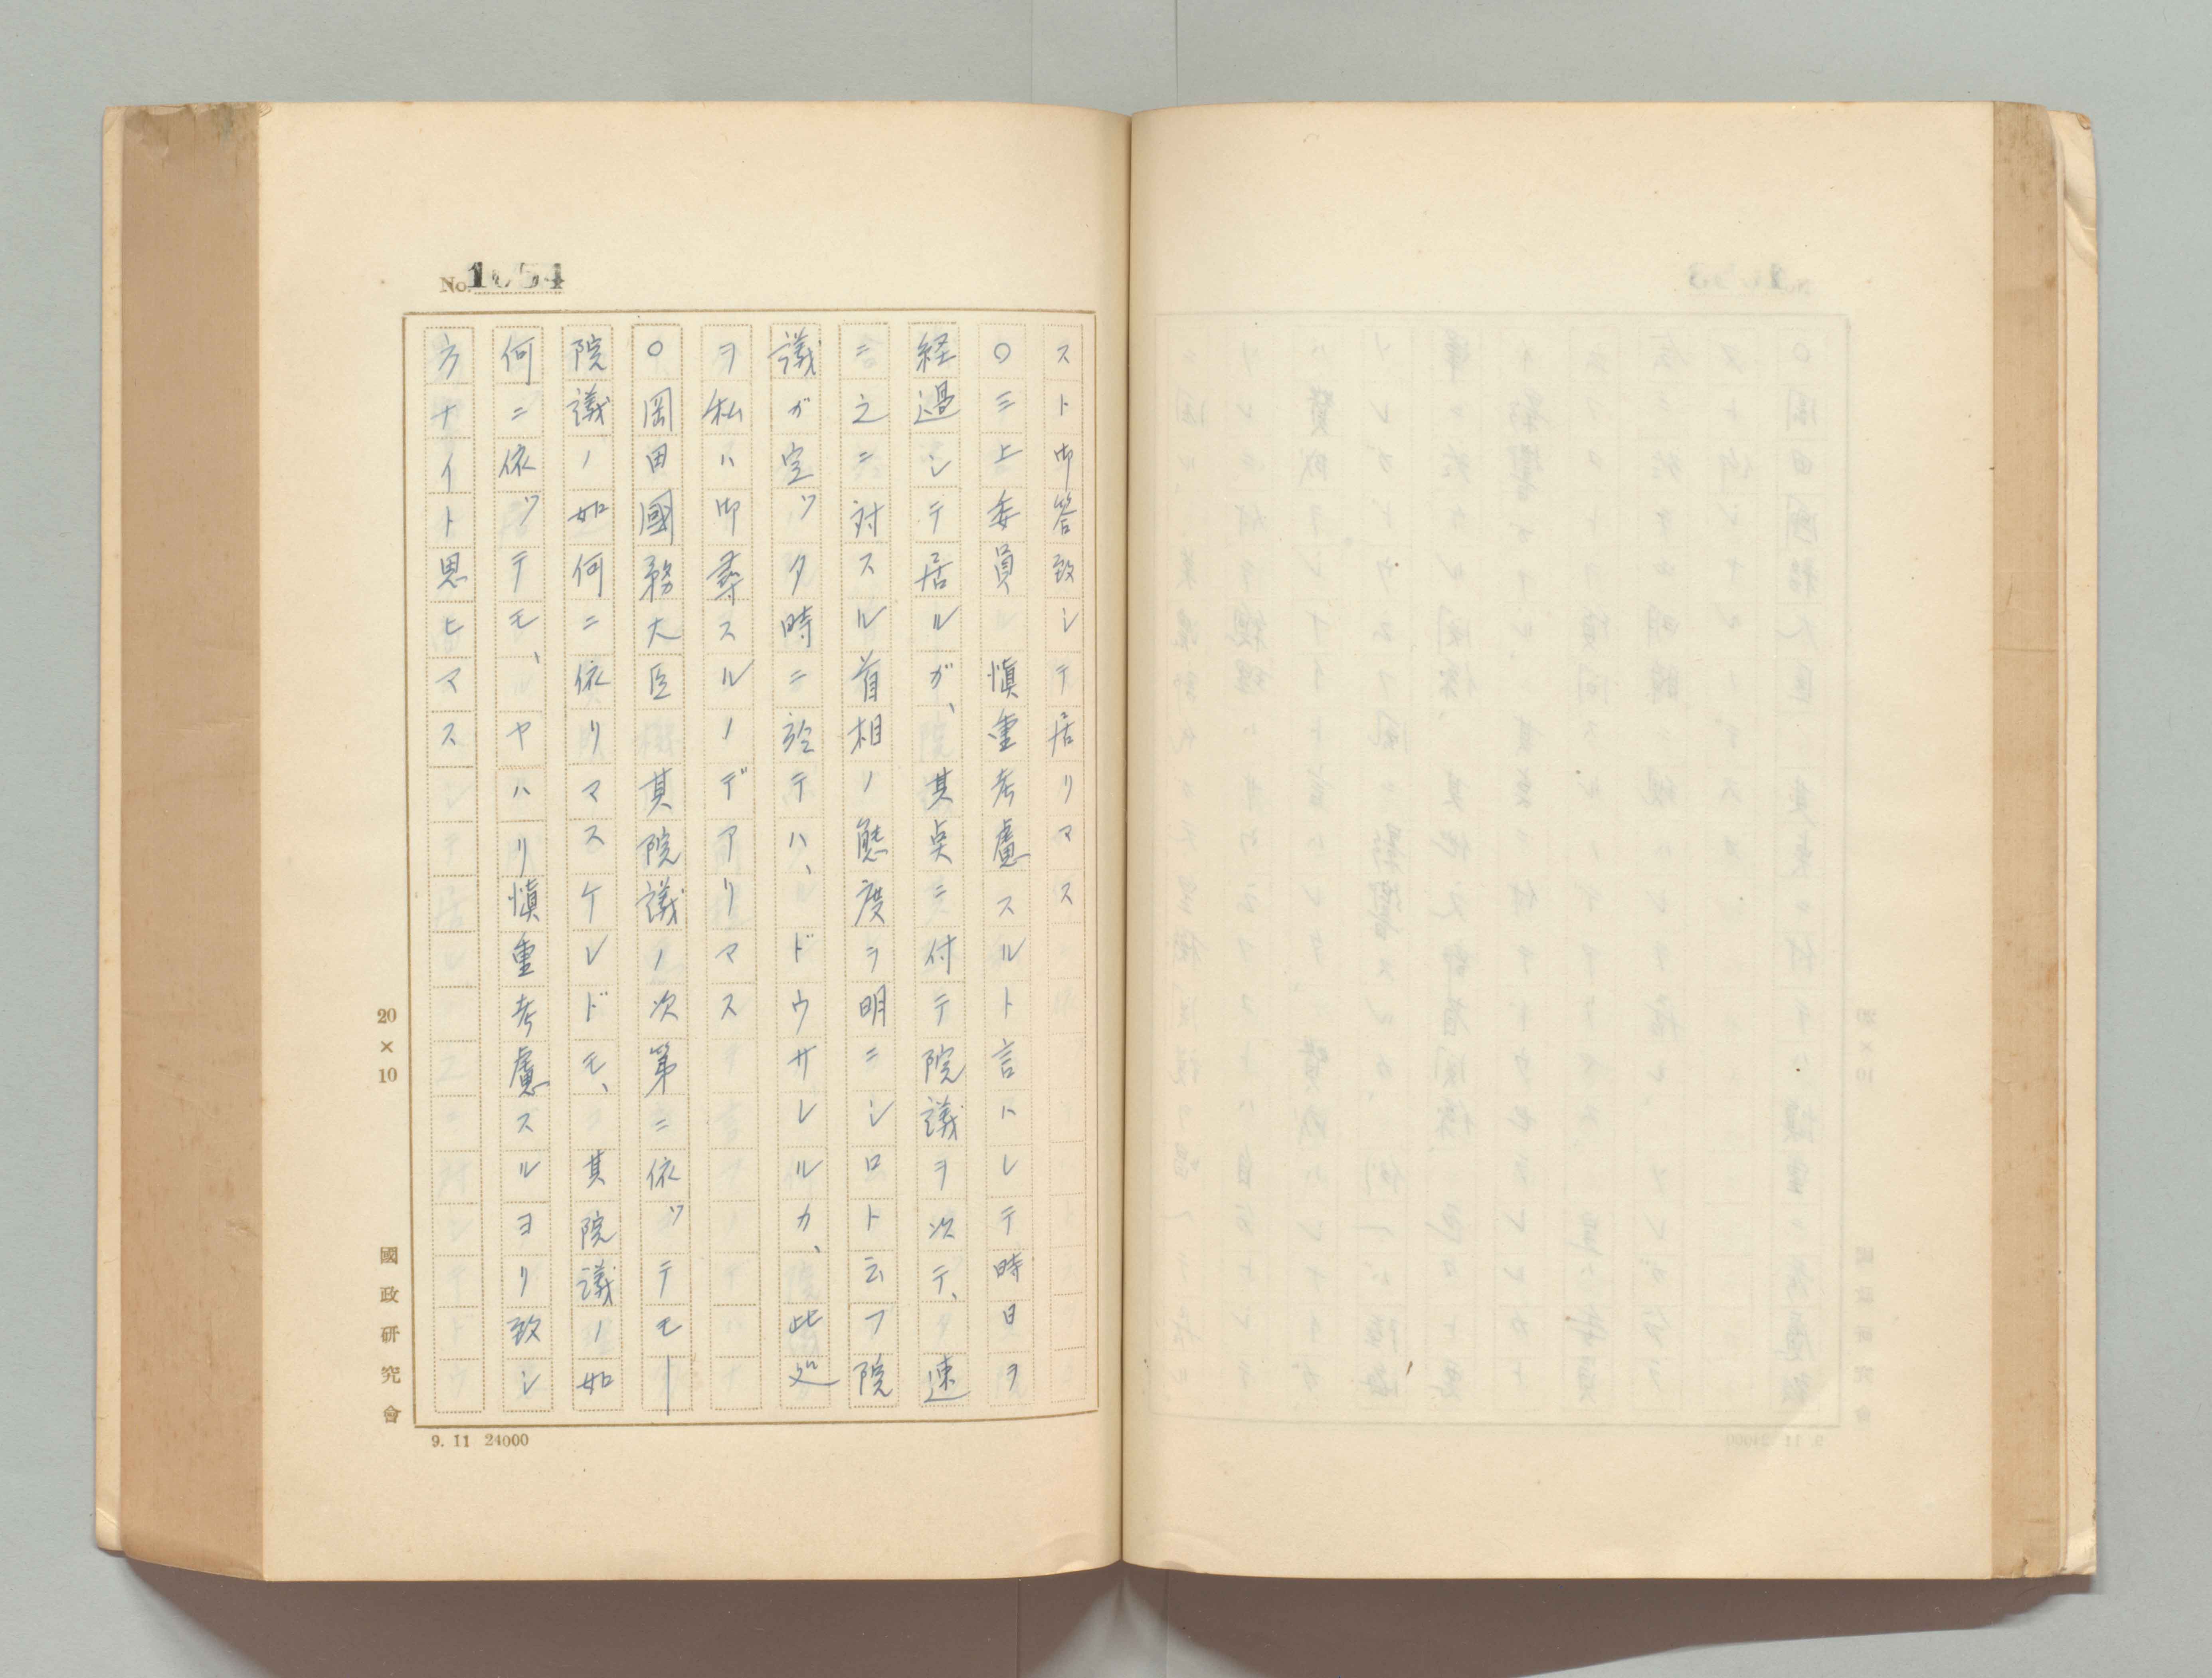 No. 1054
スト御答致シテ居リマス
○三上委員　慎重考慮スルト言ハレテ時日ヲ
経過シテ居ルガ、其点ニ付テ院議ヲ次テ、速
ニ之ニ対スル首相ノ態度ヲ明ニシロト云フ院
議ガ定ツタ時ニ於テハ、ドウサレルカ、此処
ヲ私ハ御尋スルノデアリマス
○岡田國務大臣　其院議ノ次第ニ依ツテモ―
院議ノ如何ニ依リマスケレドモ、其院議ノ如
何ニ依ツテモ、ヤハリ慎重考慮スルヨリ致シ
方ナイト思ヒマス
20×10
國政研究會
9. 11 24000